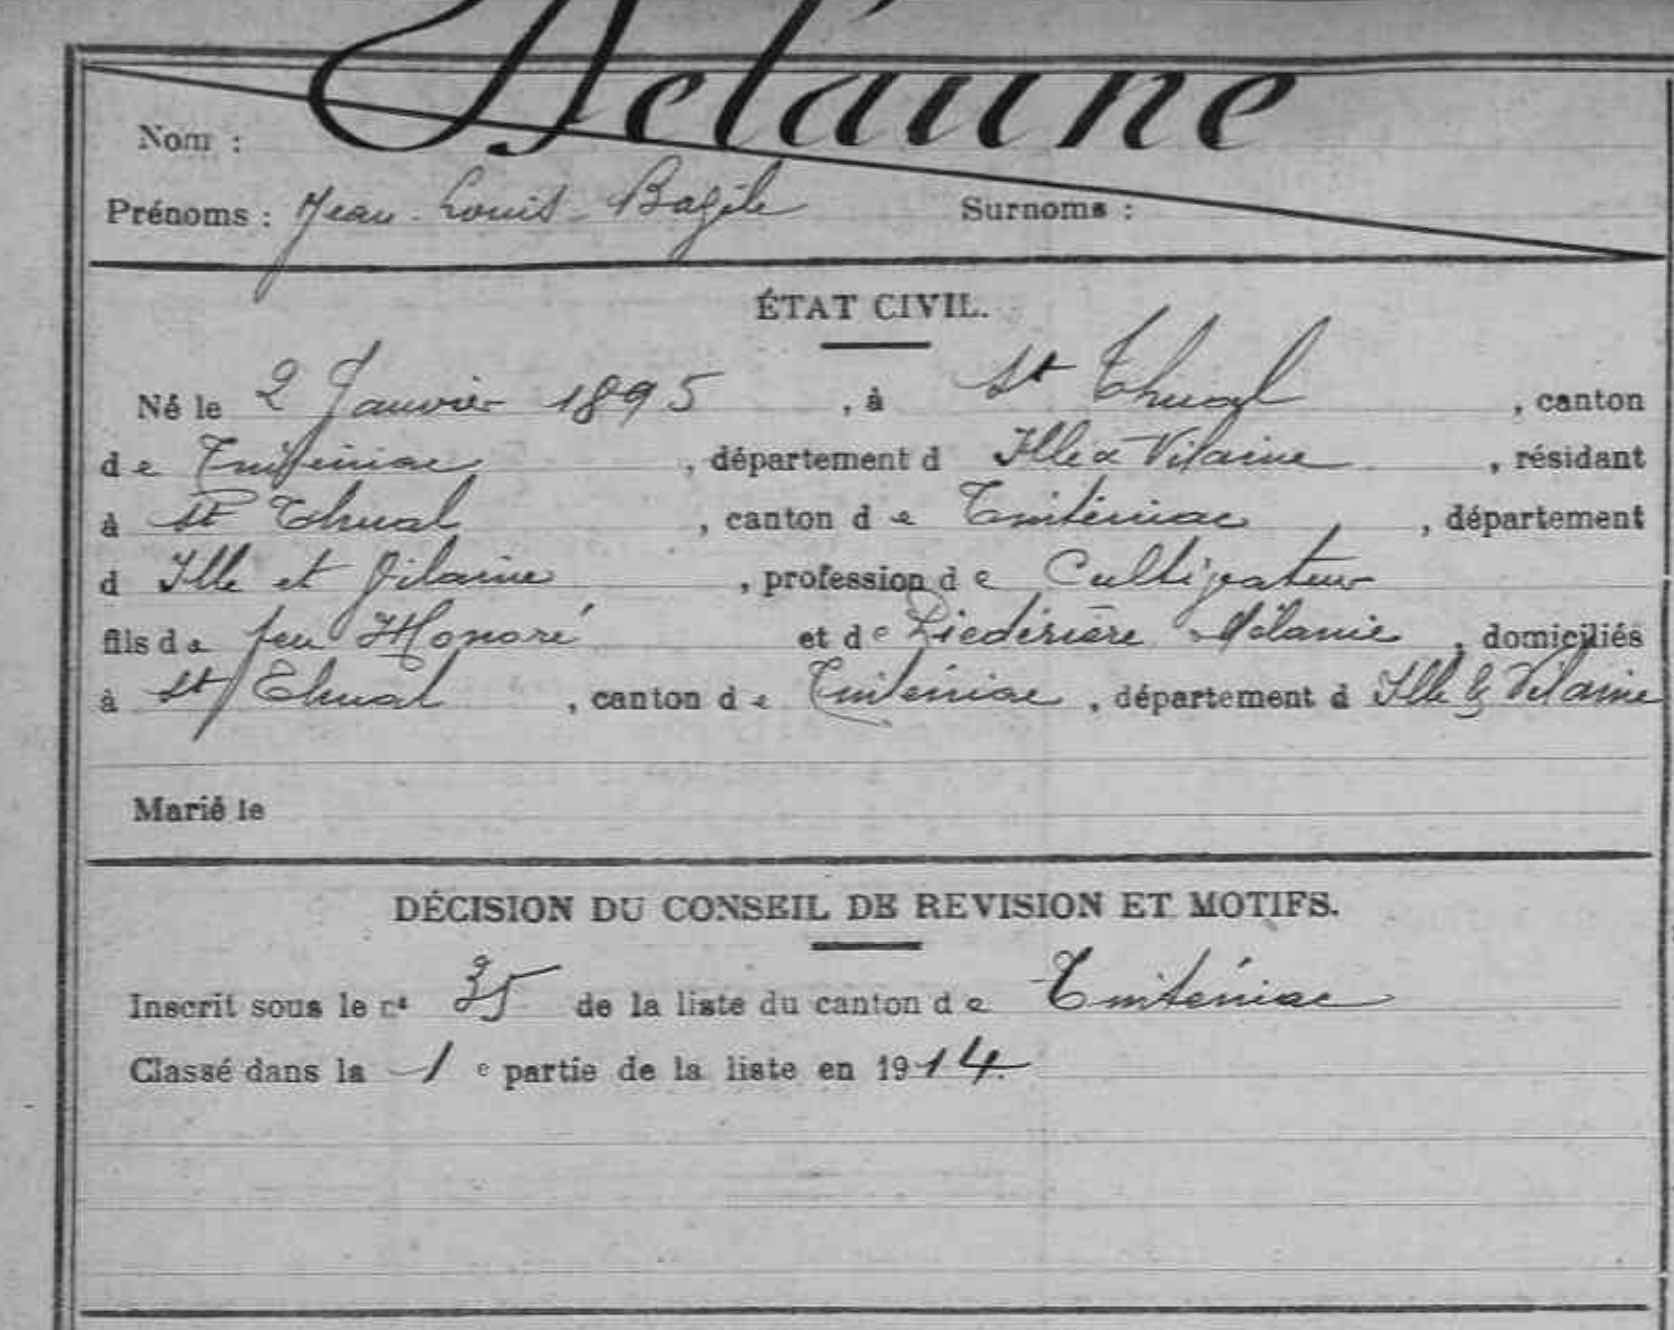 Nom : Delaune
Prénoms : Jean Louis Bazile Surnoms :
ÉTAT CIVIL.
Né le 2 Janvier 1895, à St Thual, canton
de Tinténiac, département d Ille & Vilaine, résidant
à St Thual, canton de Tinténiac, département
d Ille et Vilaine, profession de Cultivateur
fils de feu Honoré et de Mélanie, domiciliés
à St Thual, canton de Tinténiac, département d Ille & Vilaine
Marié le
DÉCISION DU CONSEIL DE REVISION ET MOTIFS.
Inscrit sous le n° 35 de la liste du canton de Tinténiac
Classé dans la 1e partie de la liste en 1914